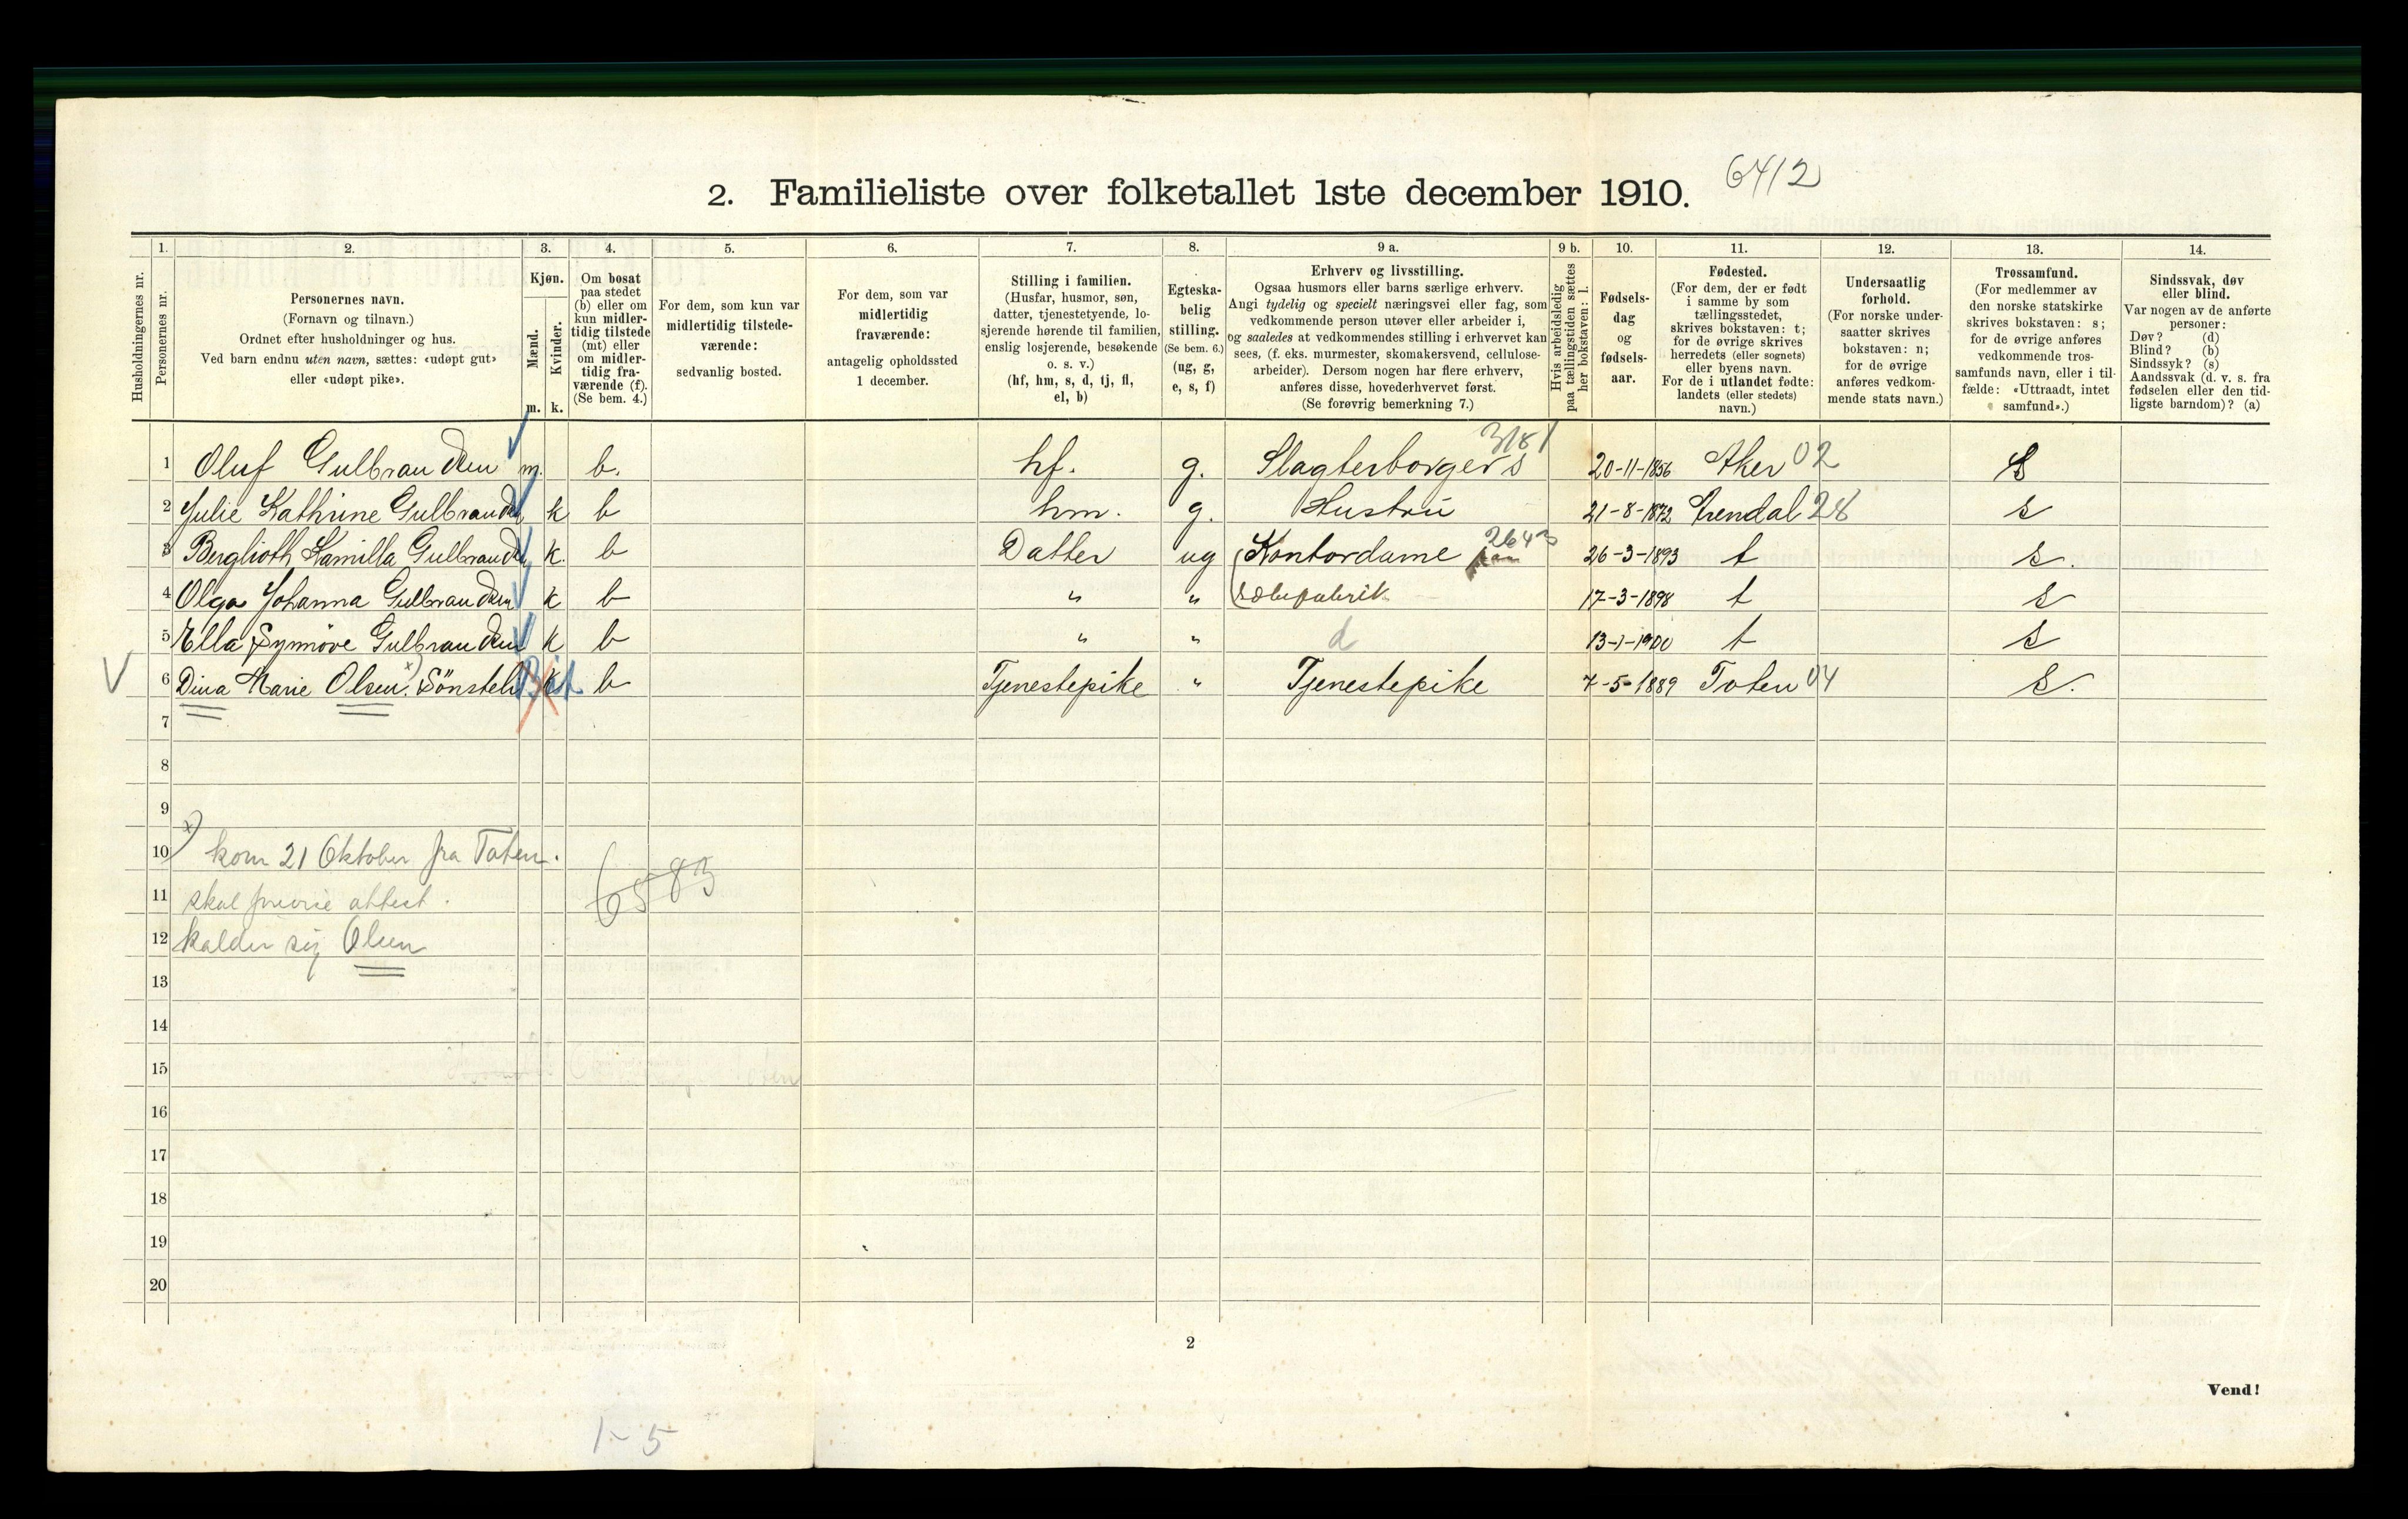 6412
2. Familieliste over folketallet 1ste december 1910.
Husholdningernes nr.
1. Personernes nr.
2. Personernes navn.
(Fornavn og tilnavn.)
Ordnet efter husholdninger og hus.
Ved barn endnu uten navn, sættes: «udøpt gut»
eller «udøpt pike».
3. Kjøn.
Mænd. Kvinder.
m. k.
4. Om bosat
paa stedet
(b) eller om
kun midler-
tidig tilstede
(mt) eller
om midler-
tidig fra-
værende (f).
(Se bem. 4.)
5. For dem, som kun var
midlertidig tilstede-
værende:
sedvanlig bosted.
6. For dem, som var
midlertidig
fraværende:
antagelig opholdssted
1 december.
7. Stilling i familien.
(Husfar, husmor, søn,
datter, tjenestetyende, lo-
sjerende hørende til familien,
enslig losjerende, besøkende
o. s. v.)
(hf, hm, s, d, tj, fl,
el, b)
8. Egteska-
belig
stilling.
(Se bem. 6.)
(ug, g,
e, s, f)
9 a. Erhverv og livsstilling.
Ogsaa husmors eller barns særlige erhverv.
Angi tydelig og specielt næringsvei eller fag, som
vedkommende person utøver eller arbeider i,
og saaledes at vedkommendes stilling i erhvervet kan
sees, (f. eks. murmester, skomakersvend, cellulose-
arbeider). Dersom nogen har flere erhverv,
anføres disse, hovederhvervet først.
(Se forøvrig bemerkning 7.)
9 b. Hvis arbeidsledig
paa tællingstiden sættes
her bokstaven: l.
10. Fødsels-
dag
og
fødsels-
aar.
11. Fødested.
(For dem, der er født
i samme by som
tællingsstedet,
skrives bokstaven: t;
for de øvrige skrives
herredets (eller sognets)
eller byens navn.
For de i utlandet fødte:
landets (eller stedets)
navn.)
12. Undersaatlig
forhold.
(For norske under-
saatter skrives
bokstaven: n;
for de øvrige
anføres vedkom-
mende stats navn.)
13. Trossamfund.
(For medlemmer av
den norske statskirke
skrives bokstaven: s;
for de øvrige anføres
vedkommende tros-
samfunds navn, eller i til-
fælde: «Uttraadt, intet
samfund».)
14. Sindssvak, døv
eller blind.
Var nogen av de anførte
personer:
Døv? (d)
Blind? (b)
Sindssyk? (s)
Aandssvak (d. v. s. fra
fødselen eller den tid-
ligste barndom)? (a)
3181
1 Oluf Gulbrandsen m. b. hf. g. Slagterborgers 20-11-1856 Aker 02 S
2 Julie Kathrine Gulbrandsen k b hm. g. Hustru 21-8-1872 Arendal 28 s
2643
3 Berglioth Kamilla Gulbrandsen k. b Datter ug Kontordame 26-3-1893 t s.
4 Olga Johanna Gulbrandsen k b " " sæbefabrik 17-3-1898 t s
5 Ella Synnöve Gulbrandsen k b " " d 13-1-1900 t s
6 Dina Marie Olsen x) k b Tjenestepike " Tjenestepike 7-5-1889 Toten 04 s.
7
8
9
x)
10 kom 21 Oktober fra Toten.
6583
11 skal attest.
12 kalder sig Olsen
13
14
15
16
17
18
19
20
2
Vend!
1-5